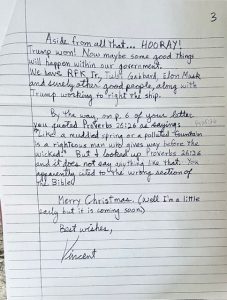 3
Aside from all that... HOORAY!
Trump won! Now maybe some good things
will happen within our government.
We have RFK, Jr., Tulsi Gabbard, Elon Musk
and surely other good people, along with
Trump working to right the ship.
By the way, on p. 6 of your letter
you quoted Proverbs 26:26 as saying:
"Like a muddied spring or a polluted fountain
is a righteous man who gives way before the
wicked." But I looked up Proverbs 26:26
and it does not say anything like that. You
apparently cited to the wrong section of
the Bible.
Merry Christmas. (Well I'm a little
early but it is coming soon)
Best wishes,
Vincent